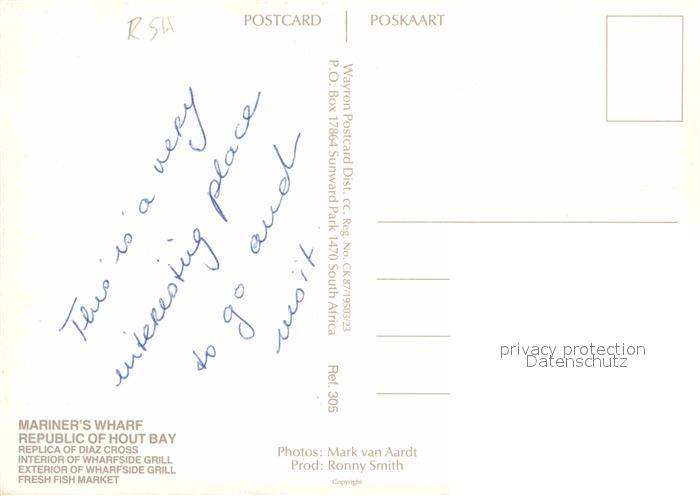 R 5H
POSTCARD
POSKAART
This is a very
interesting place
to go and
visit
Wayron Postcard Dist. cc. Reg. No. CK 87/19503/23
P.O. Box 17864 Sunward Park 1470 South Africa
Ref. 305
privacy protection
Datenschutz
MARINER'S WHARF
REPUBLIC OF HOUT BAY
REPLICA OF DIAZ CROSS
INTERIOR OF WHARFSIDE GRILL
EXTERIOR OF WHARFSIDE GRILL
FRESH FISH MARKET
Photos: Mark van Aardt
Prod: Ronny Smith
Copyright